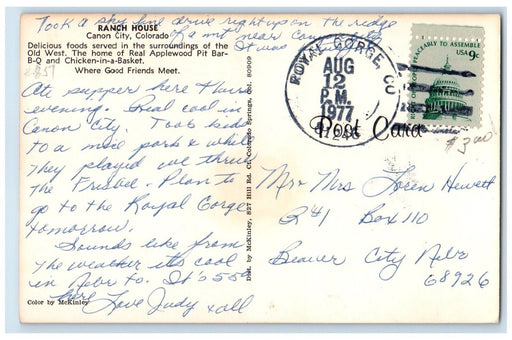 Took a sky line drive right up on the ridge
of a mt near Canon City
It was
RANCH HOUSE
Canon City, Colorado
Delicious foods served in the surroundings of the
Old West. The home of Real Applewood Pit Bar-
B-Q and Chicken-in-a-Basket.
Where Good Friends Meet.
Ate supper here Thurs
evening. Real cool in
Canon City. Took kids
to a nice park & while
they played we threw
the Frisbee. Plan to
go to the Royal Gorge
tomorrow.
Sounds like from
the weather its cool
in Nebr to. It's 55°
here Love Judy & all
Color by McKinley
Dist. by McKinley, 827 Hill Rd. Ct. Colorado Springs, Col. 80909
ROYAL GORGE, CO
AUG
12
P.M.
1977
81246
PEACEABLY TO ASSEMBLE
USA 9c
Post Card
$3.00
Mr & Mrs Loren Hewett
R #1 Box 110
Beaver City Nebr
68926